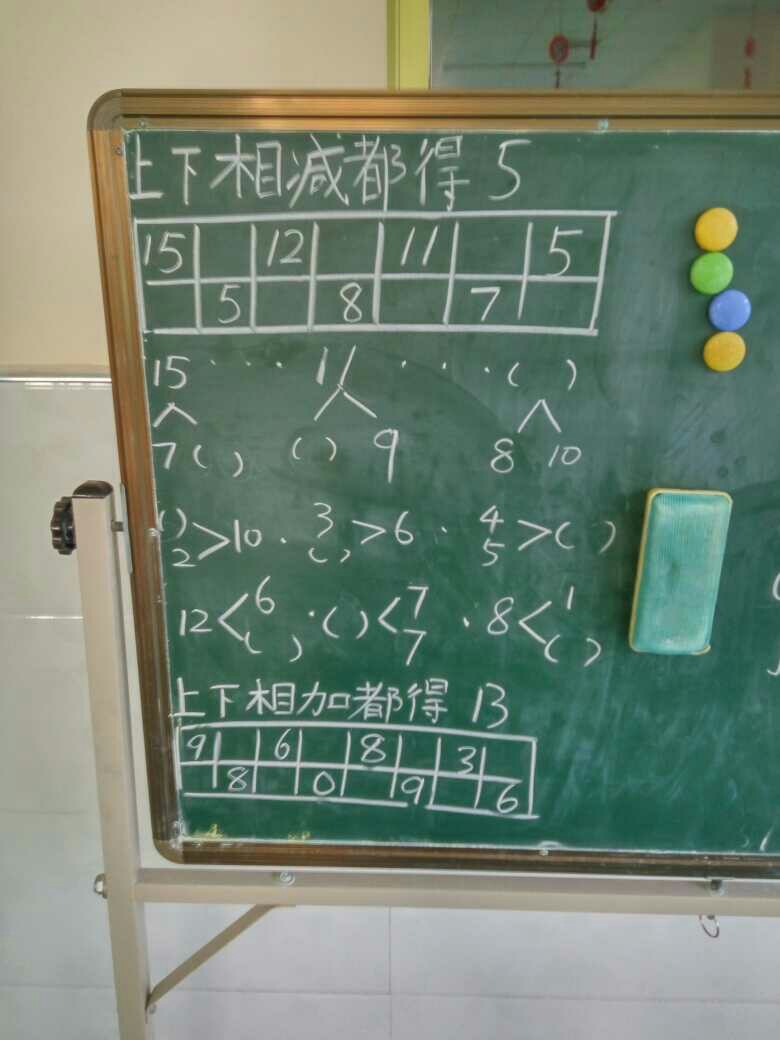 上下相减都得 5
15 12 11 5
5 8 7
15 · · · 11 · · · ( )
7 ( ) ( ) 9 8 10
( ) 3 4
> 10 · > 6 · > ( )
2 ( ) 5
6 7 1
12 < · ( ) < · 8 <
( ) 7 ( )
上下相加都得 13
9 6 8 3
8 0 9 6